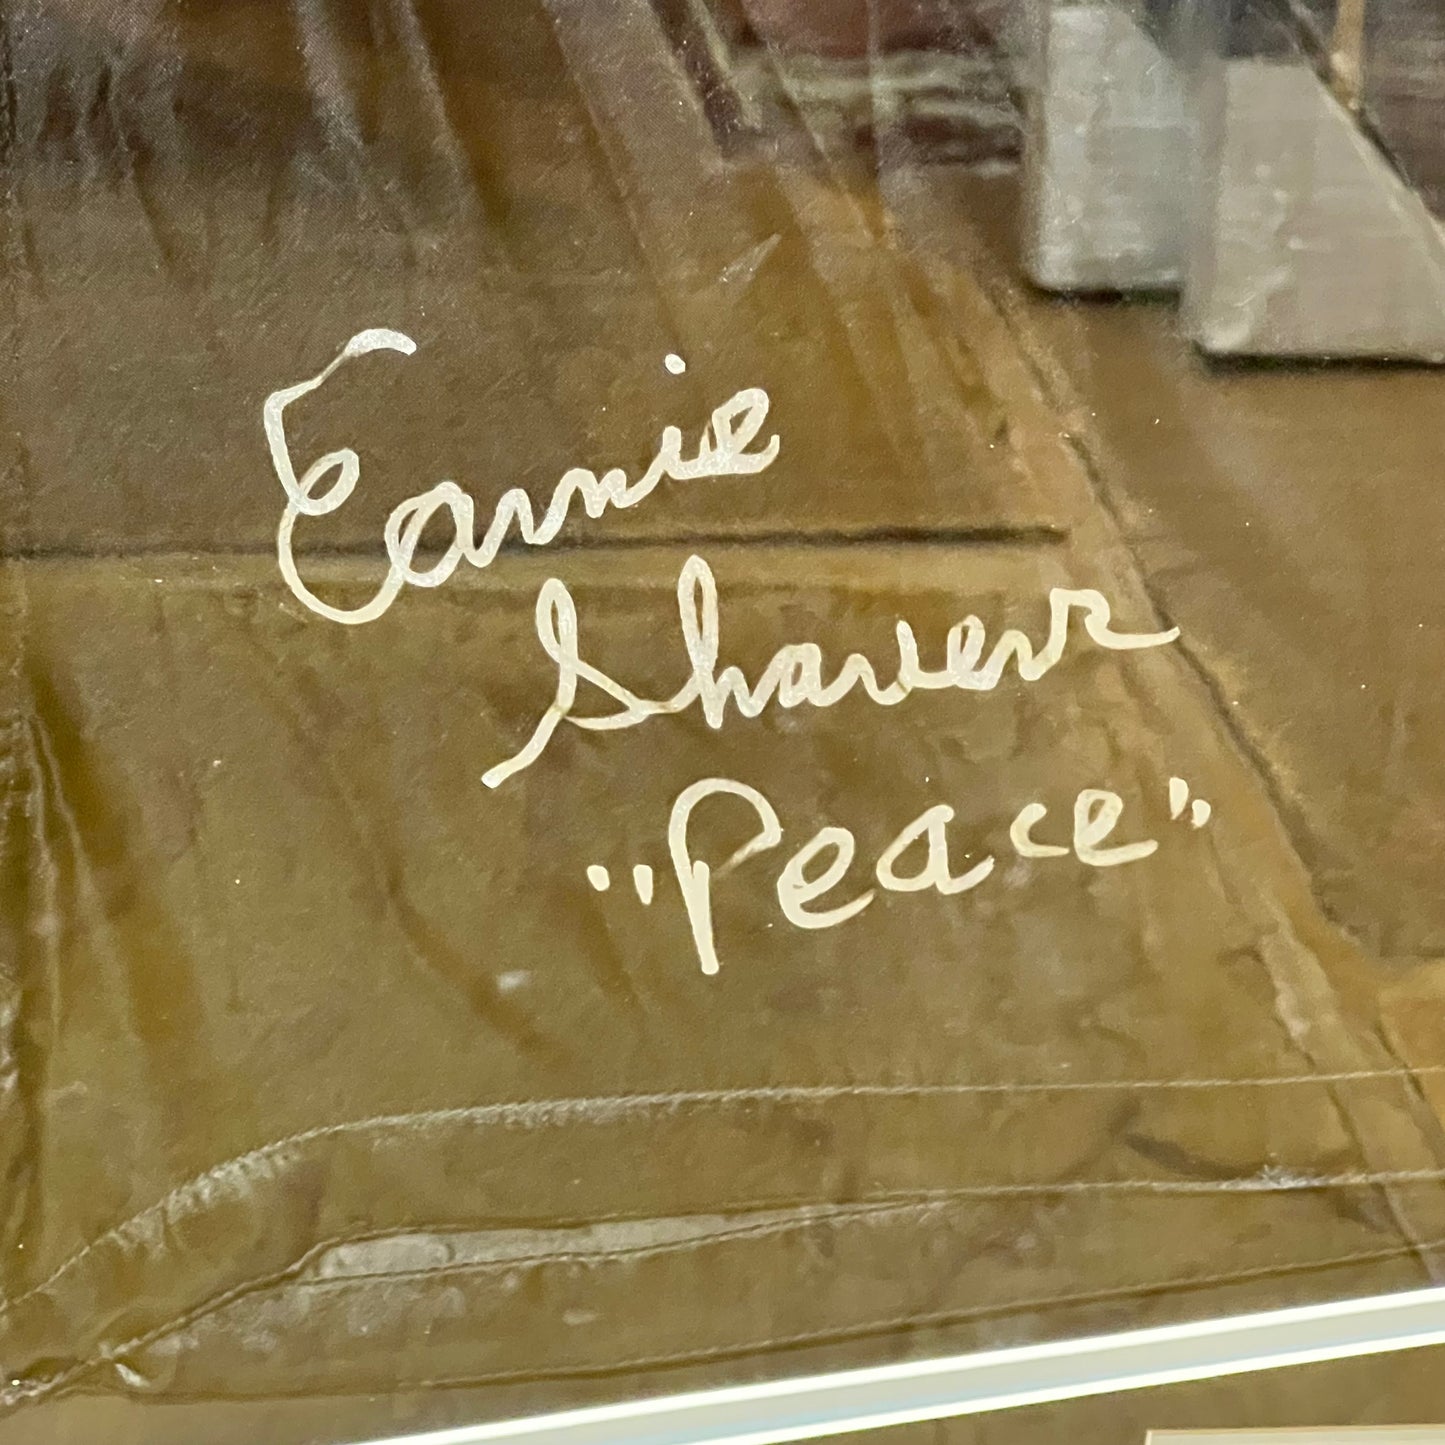 Earnie
Shavers
"Peace"